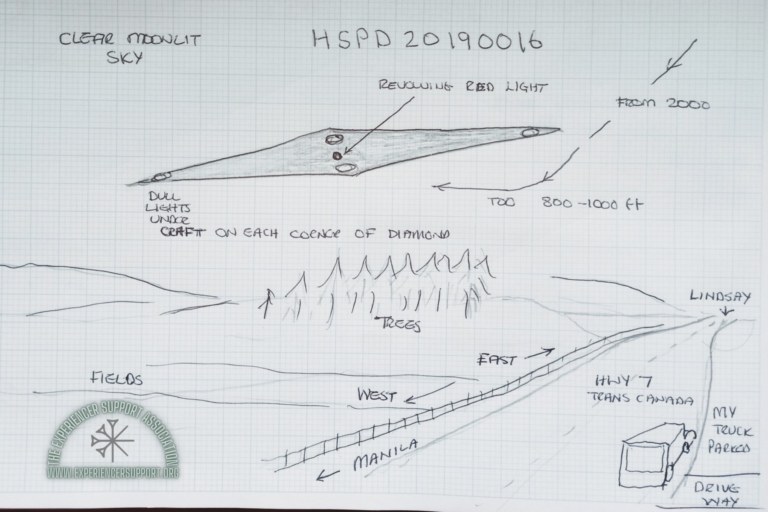 CLEAR MOONLIT
SKY
HSPD 20190016
REVOLVING RED LIGHT
FROM 2000
TOO 800-1000 ft
DULL
LIGHTS
UNDER
CRAFT ON EACH CORNER OF DIAMOND
TREES
LINDSAY
EAST
FIELDS
WEST
HWY 7
TRANS CANADA
MANILA
MY
TRUCK
PARKED
DRIVE
WAY
THE EXPERIENCER SUPPORT ASSOCIATION
WWW.EXPERIENCERSUPPORT.ORG